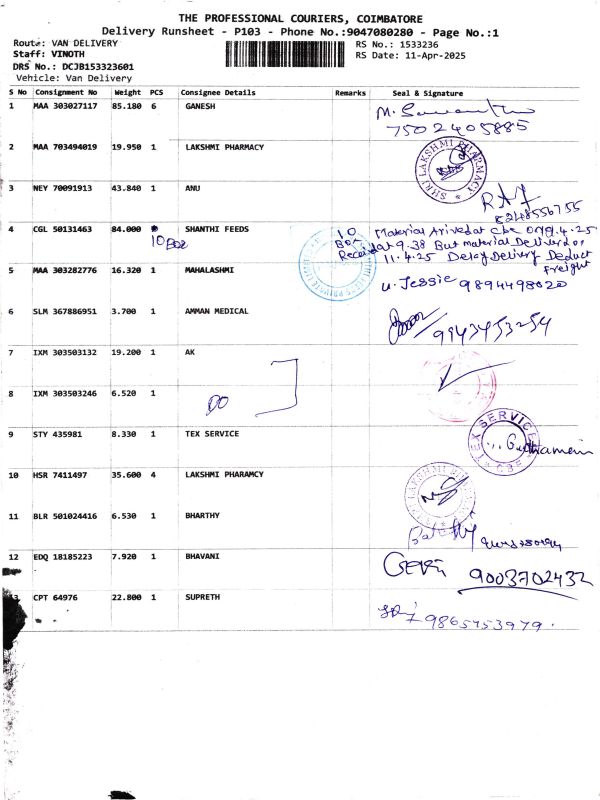 THE PROFESSIONAL COURIERS, COIMBATORE
Delivery Runsheet - P103 - Phone No.:9047080280 - Page No.:1
Route: VAN DELIVERY
Staff: VINOTH
DRS No.: DCJB153323601
Vehicle: Van Delivery
RS No.: 1533236
RS Date: 11-Apr-2025
S No Consignment No Weight PCS Consignee Details Remarks Seal & Signature
1 MAA 303027117 85.180 6 GANESH
7502405885
2 MAA 703494019 19.950 1 LAKSHMI PHARMACY
SHRI LAKSHMI PHARMACY
3 NEY 70091913 43.840 1 ANU
RAJ
4 CGL 50131463 84.000 SHANTHI FEEDS
10 Box
10 Box Material Arived at Cbe on 9.4.25
Received at 9.38 But material Deliverd on
11.4.25 Delay Delivery Deduct
Freight
5 MAA 303282776 16.320 1 MAHALASHMI
u. Jessie 9894498020
6 SLM 367886951 3.700 1 AMMAN MEDICAL
9943453254
7 IXM 303503132 19.200 1 AK
8 IXM 303503246 6.520 1
DO
9 STY 435981 8.330 1 TEX SERVICE
TEX SERVICE
CBE
10 HSR 7411497 35.600 4 LAKSHMI PHARAMCY
LAKSHMI
11 BLR 501024416 6.530 1 BHARTHY
12 EDQ 18185223 7.920 1 BHAVANI
9003702432
13 CPT 64976 22.800 1 SUPRETH
9865753979.